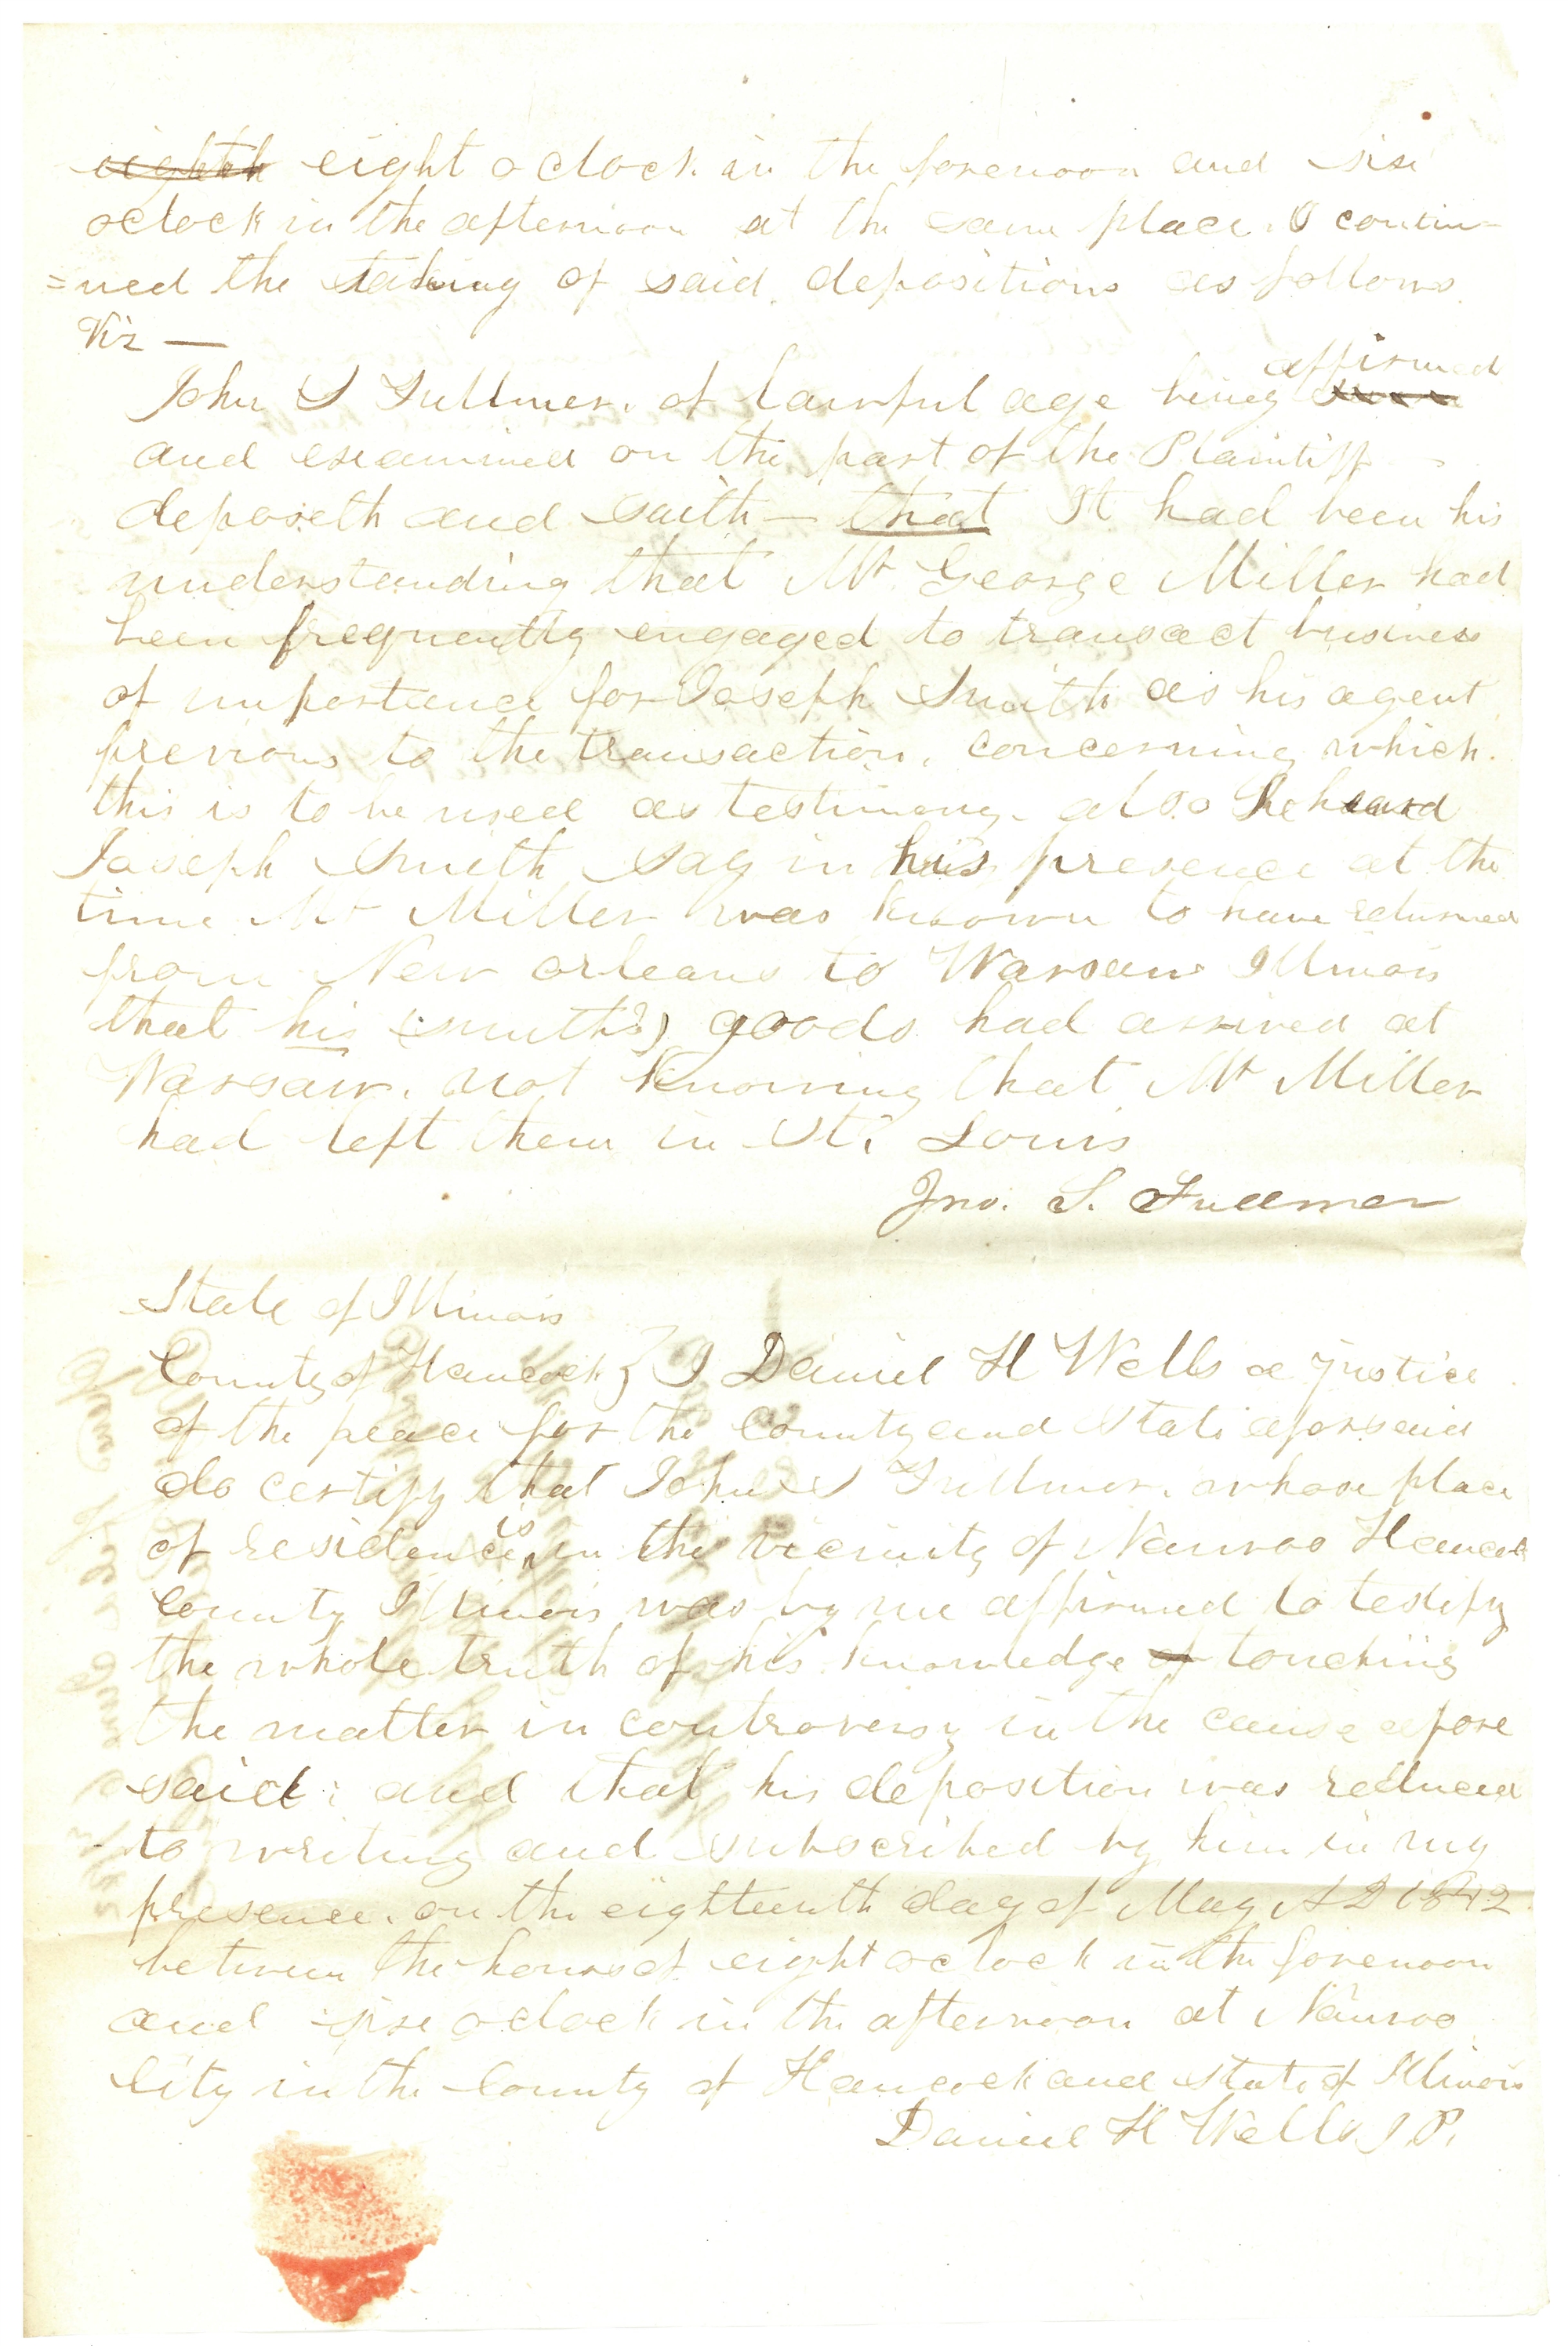 eighth eight o clock in the forenoon and six
oclock in the afternoon at the same place. I contin-
=ued the taking of said depositions as follows
Viz —
affirmed
John S Fullmer. of lawful age being
and examined on the part of the Plaintiff
deposeth and saith — that It had been his
understanding that Mr George Miller had
been frequently engaged to transact business
of importance for Joseph Smith as his agent
previous to the transaction, concerning which.
this is to be used as testimony. also he heard
Joseph Smith say in his presence at the
time Mr Miller was known to have returned
from New orleans to Warsaw Illinois
that his (smith's) goods had arrived at
Warsaw. not knowing that Mr Miller
had left them in St. Louis
Jno. S. Fullmer
State of Illinois
County of Hancock } I Daniel H Wells a justice
of the peace for the County and State aforesaid
do certify that John S Fullmer. whose place
of residence is in the vicinity of Nauvoo Hancock
County Illinois was by me affirmed to testify
the whole truth of his knowledge of touching
the matter in controversy in the cause afore
said: and that his deposition was reduced
to writing and subscribed by him in my
presence. on the eighteenth day of May A D 1842
between the hours of eight oclock in the forenoon
and six oclock in the afternoon at Nauvoo
City in the County of Hancock and State of Illinois
Daniel H Wells J.P.